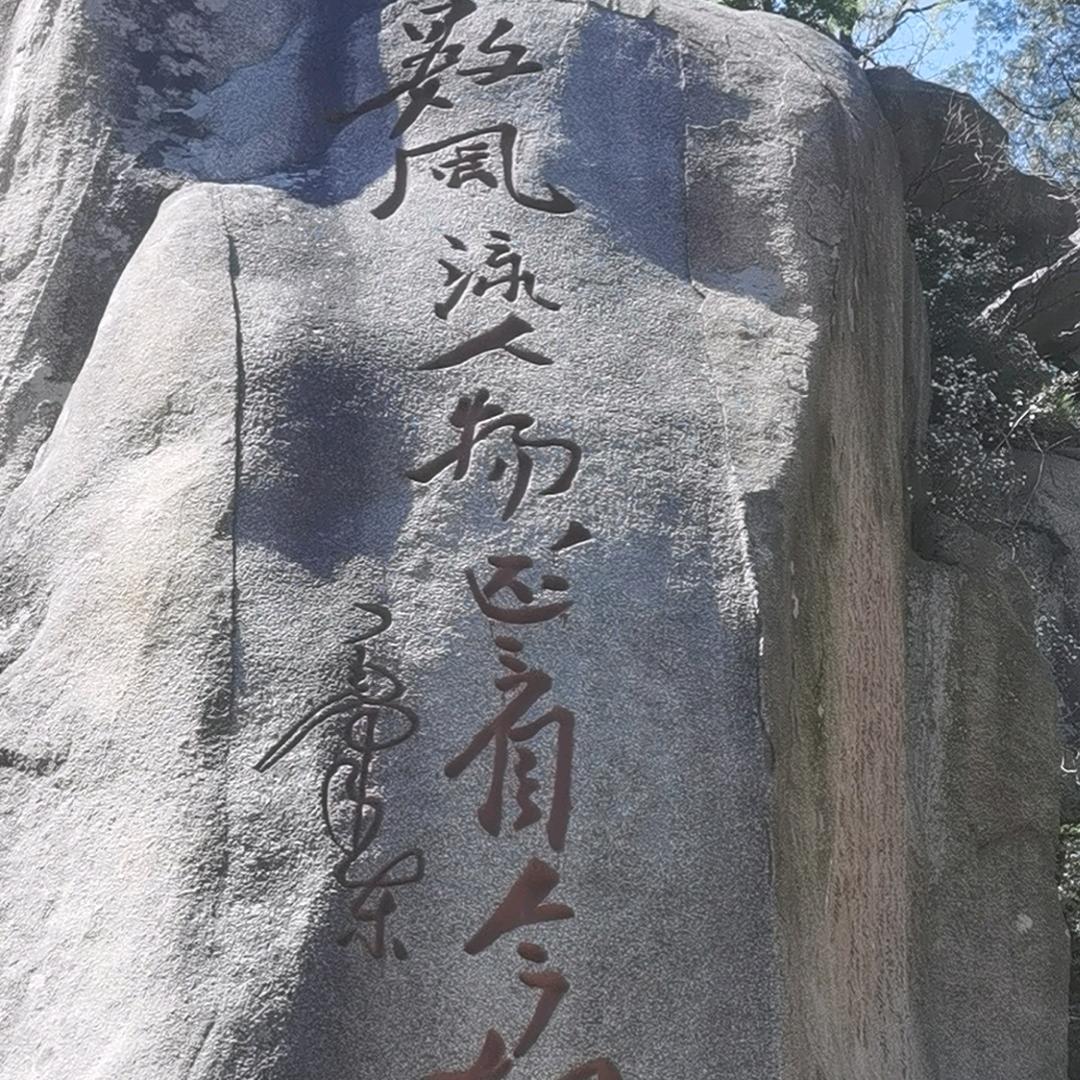 數風流人物還看今朝
毛澤东